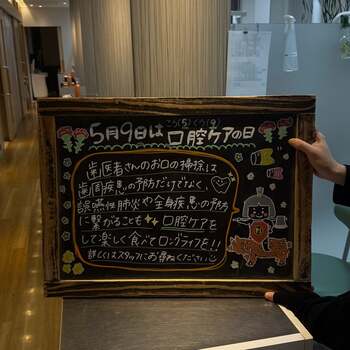 こう(5)くう(9)
5月9日は口腔ケアの日
歯医者さんのお口の掃除は
歯周疾患の予防だけでなく、
誤嚥性肺炎や全身疾患の予防
に繋がることも 口腔ケアを
して楽しく食べてロングライフを!!
詳しくはスタッフにお尋ねください